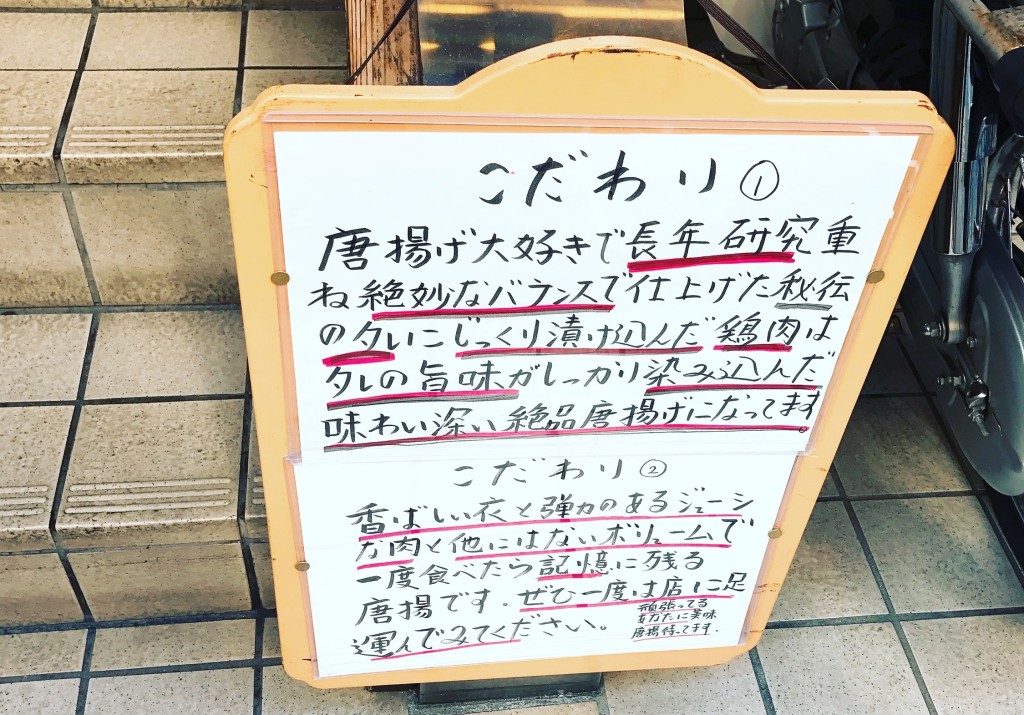 こだわり①
唐揚げ大好きで長年研究重
ね絶妙なバランスで仕上げた秘伝
のタレにじっくり漬け込んだ鶏肉は
タレの旨味がしっかり染み込んだ
味わい深い絶品唐揚げになってます。
こだわり②
香ばしい衣と弾力のあるジューシ
な肉と他にはないボリュームで
一度食べたら記憶に残る
唐揚です.ぜひ一度は店に足
運んでみてください。
頑張ってる
あなたに美味
唐揚待ってます.